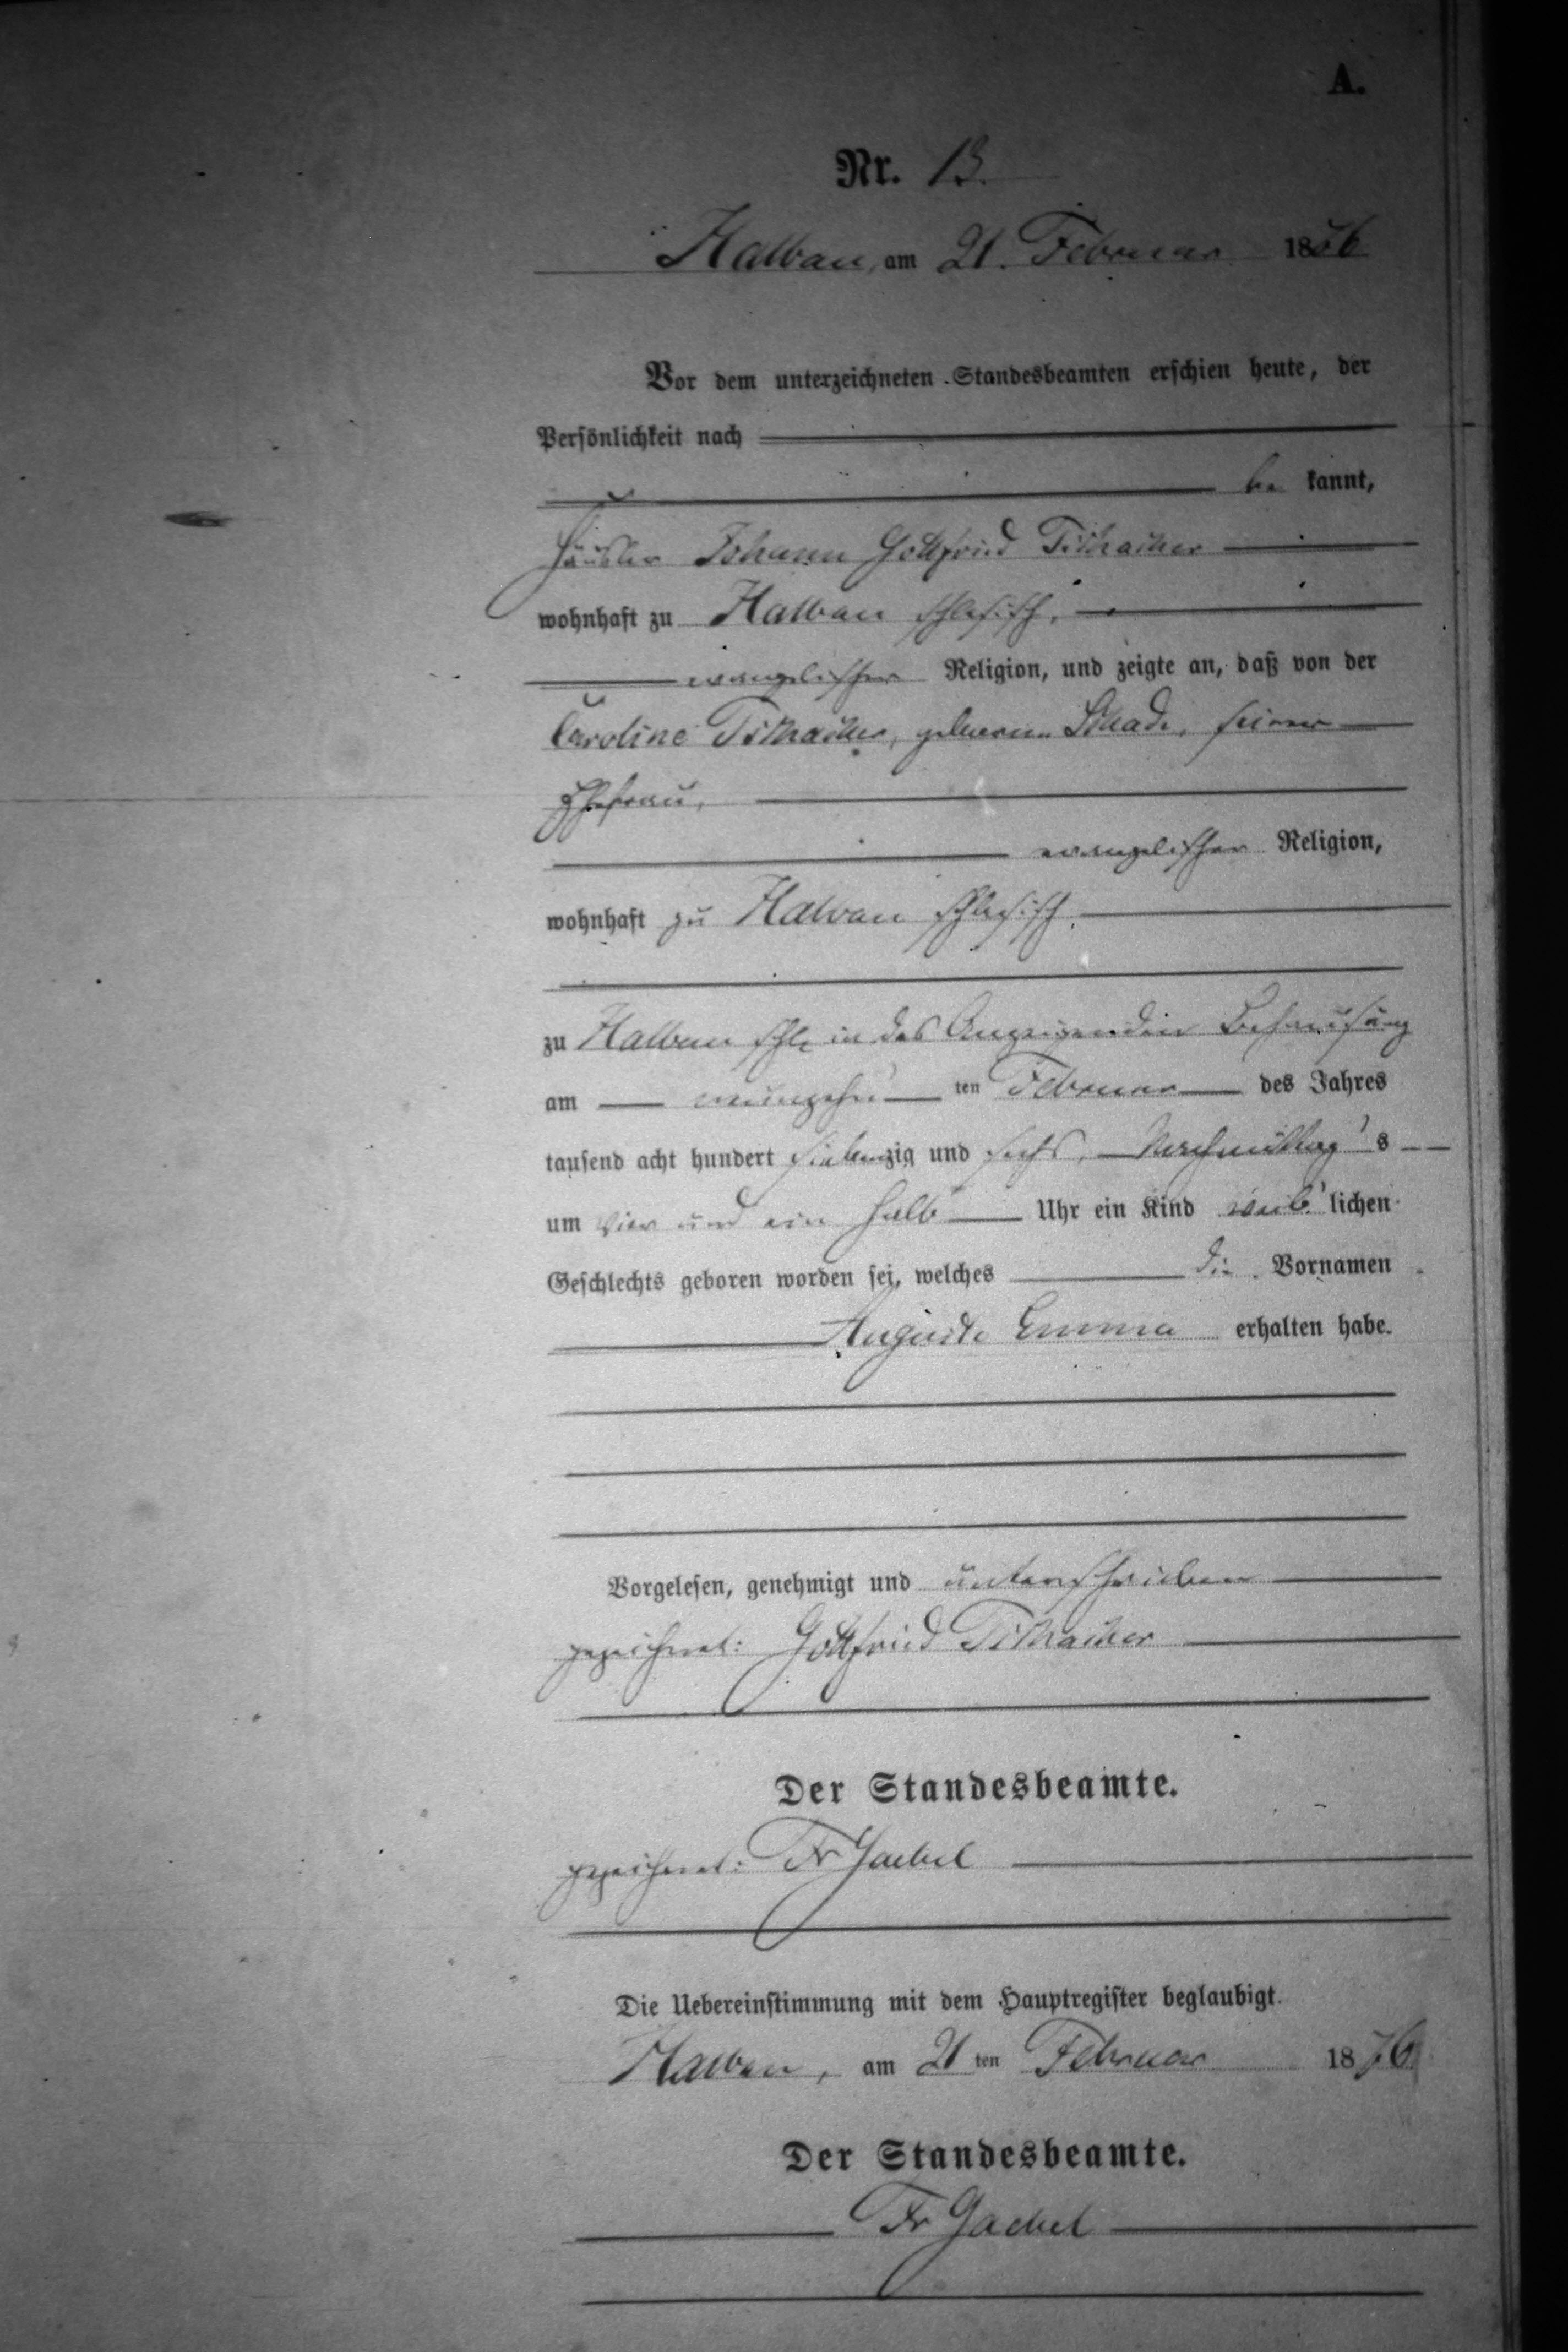 A.
Nr. 13.
Halbau, am 21. Februar 1876
Vor dem unterzeichneten Standesbeamten erschien heute, der
Persönlichkeit nach
be kannt,
Häusler Johann Gottfried
wohnhaft zu Halbau schlesisch,
evangelischer Religion, und zeigte an, daß von der
Caroline geborenen Schade, seiner
Ehefrau,
evangelischer Religion,
wohnhaft zu Halbau schlesisch,
zu Halbau schls in des Anzeigenden Behausung
am neunzehn ten Februar des Jahres
tausend acht hundert siebenzig und sechs, Nachmittag s
um vier und ein halb Uhr ein Kind weib lichen
Geschlechts geboren worden sei, welches die Vornamen
Auguste Emma erhalten habe.
Vorgelesen, genehmigt und unterschrieben
gezeichnet: Gottfried
Der Standesbeamte.
gezeichnet: Fr Gaebel
Die Uebereinstimmung mit dem Hauptregister beglaubigt.
Halbau, am 21 ten Februar 1876
Der Standesbeamte.
Fr Gaebel